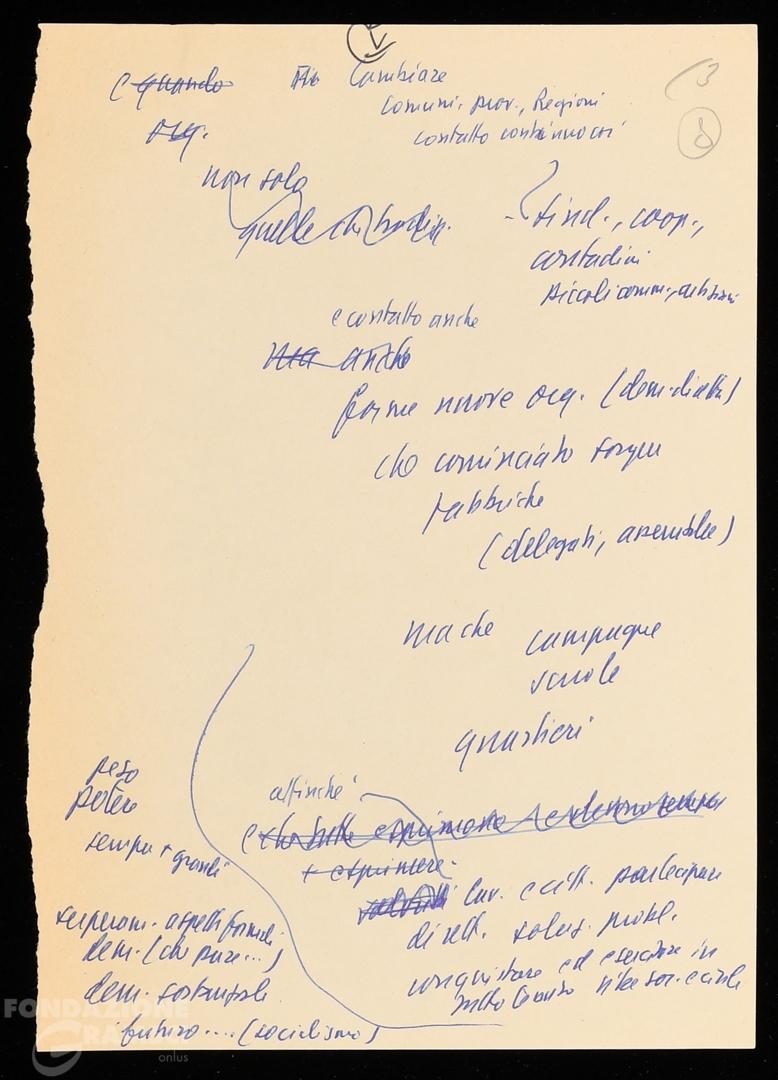 V
3
8
e quando
Cambiare
comuni, prov., Regioni
contatto continuo coi
org.
non solo
quelle
- sind., coop.,
contadini
piccoli comm., artigiani
e contatto anche
ma anche
forme nuove org. (dem. diretta)
che cominciato sorgere
fabbriche
(delegati, assemblee)
ma che campagne
scuole
quartieri
peso
potere
sempre + grandi
affinché
e che
+ esprimere
lav. e citt. partecipare
dirett. soluz. probl.
conquistare ed esercitare in
superam. aspetti formali
dem. (che pure...)
dem. sostanziale
futuro .... (socialismo)
FONDAZIONE
GRAMSCI
onlus